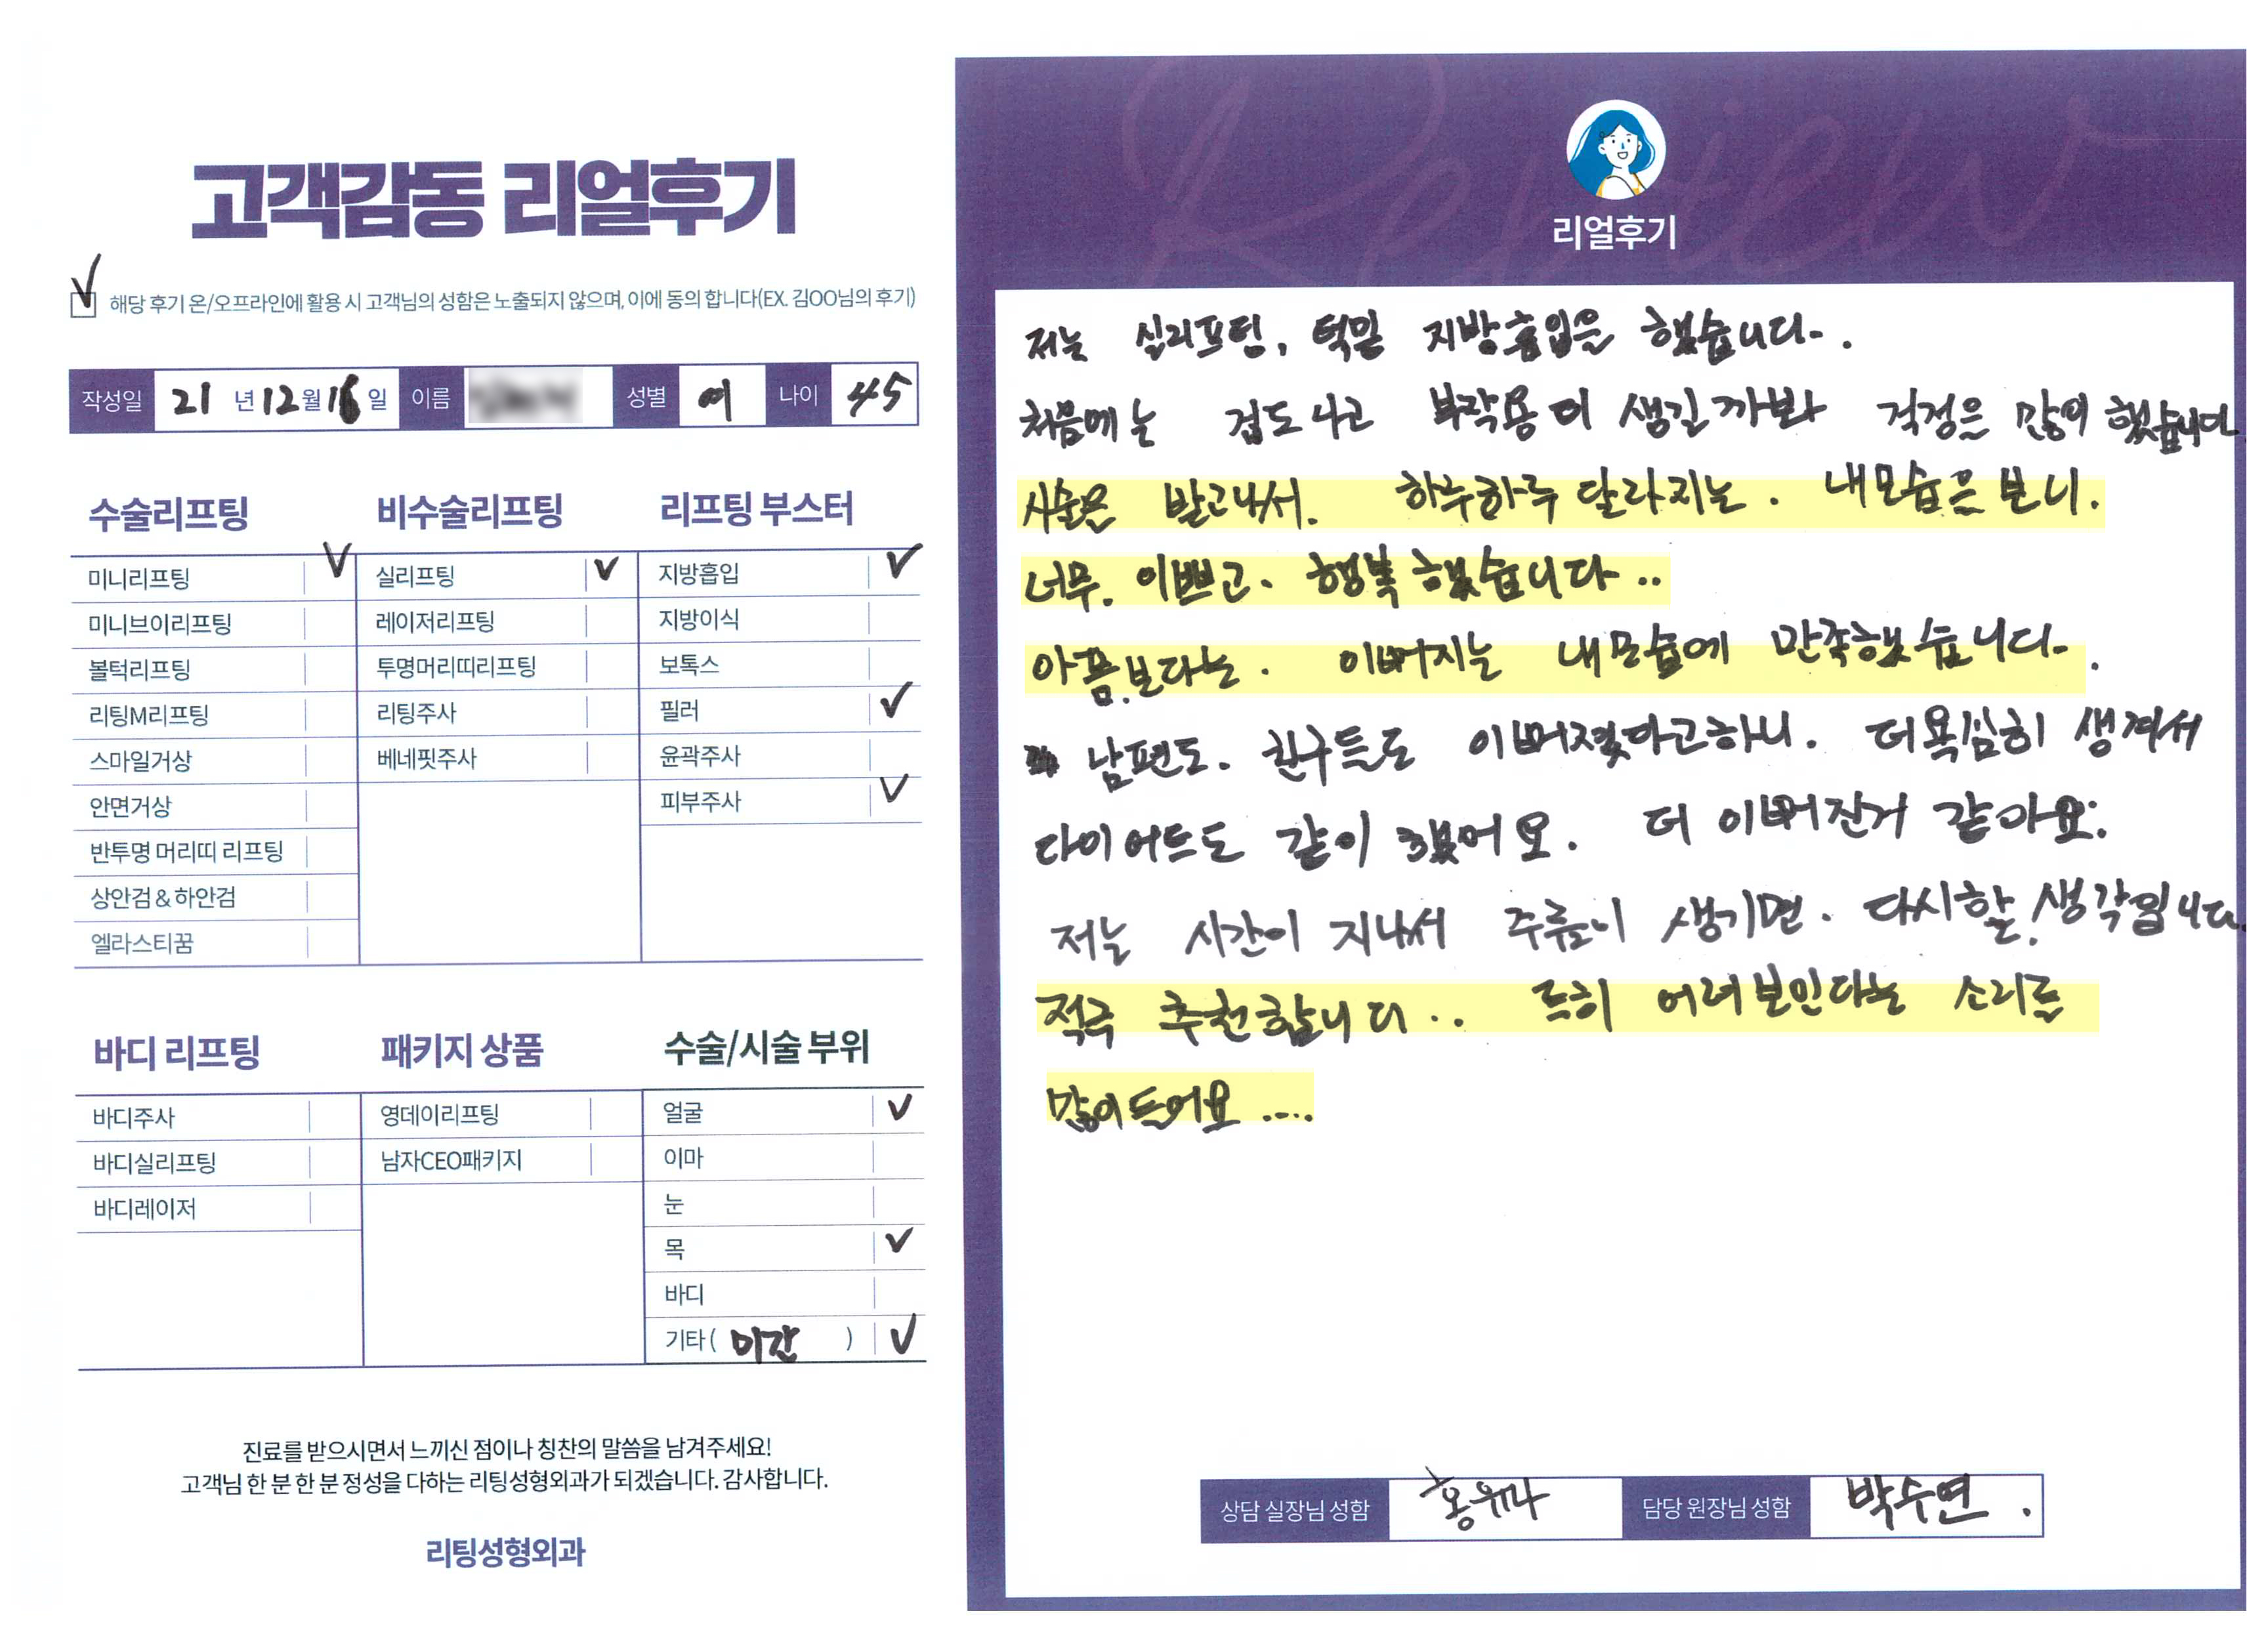 고객감동 리얼후기
해당 후기 온/오프라인에 활용 시 고객님의 성함은 노출되지 않으며, 이에 동의 합니다(EX. 김OO님의 후기)
작성일 21 년 12 월 16 일 이름 성별 여 나이 45
수술리프팅
미니리프팅
미니브이리프팅
볼턱리프팅
리팅M리프팅
스마일거상
안면거상
반투명 머리띠 리프팅
상안검 & 하안검
엘라스티꿈
비수술리프팅
실리프팅
레이저리프팅
투명머리띠리프팅
리팅주사
베네핏주사
리프팅 부스터
지방흡입
지방이식
보톡스
필러
윤곽주사
피부주사
바디 리프팅
바디주사
바디실리프팅
바디레이저
패키지 상품
영데이리프팅
남자CEO패키지
수술/시술 부위
얼굴
이마
눈
목
바디
기타( 미간 )
진료를 받으시면서 느끼신 점이나 칭찬의 말씀을 남겨주세요!
고객님 한 분 한 분 정성을 다하는 리팅성형외과가 되겠습니다. 감사합니다.
리팅성형외과
Review
리얼후기
저는 실리프팅, 턱밑 지방흡입을 했습니다.
처음에는 겁도나고 부작용이 생길까봐 걱정은 많이 했습니다
시술은 받고나서. 하루하루 달라지는. 내모습은 보니.
너무. 이쁘고. 행복했습니다..
아픔.보다는. 이뻐지는 내모습에 만족했습니다.
남편도. 친구들도 이뻐졌다고하니. 더욕심히 생겨서
다이어트도 같이 했어요. 더 이뻐진거 같아요.
저는 시간이 지나서 주름이 생기면. 다시할 생각입니다.
적극 추천합니다.. 특히 어려보인다는 소리를
많이들어요 ....
상담 실장님 성함 담당 원장님 성함 박수연.